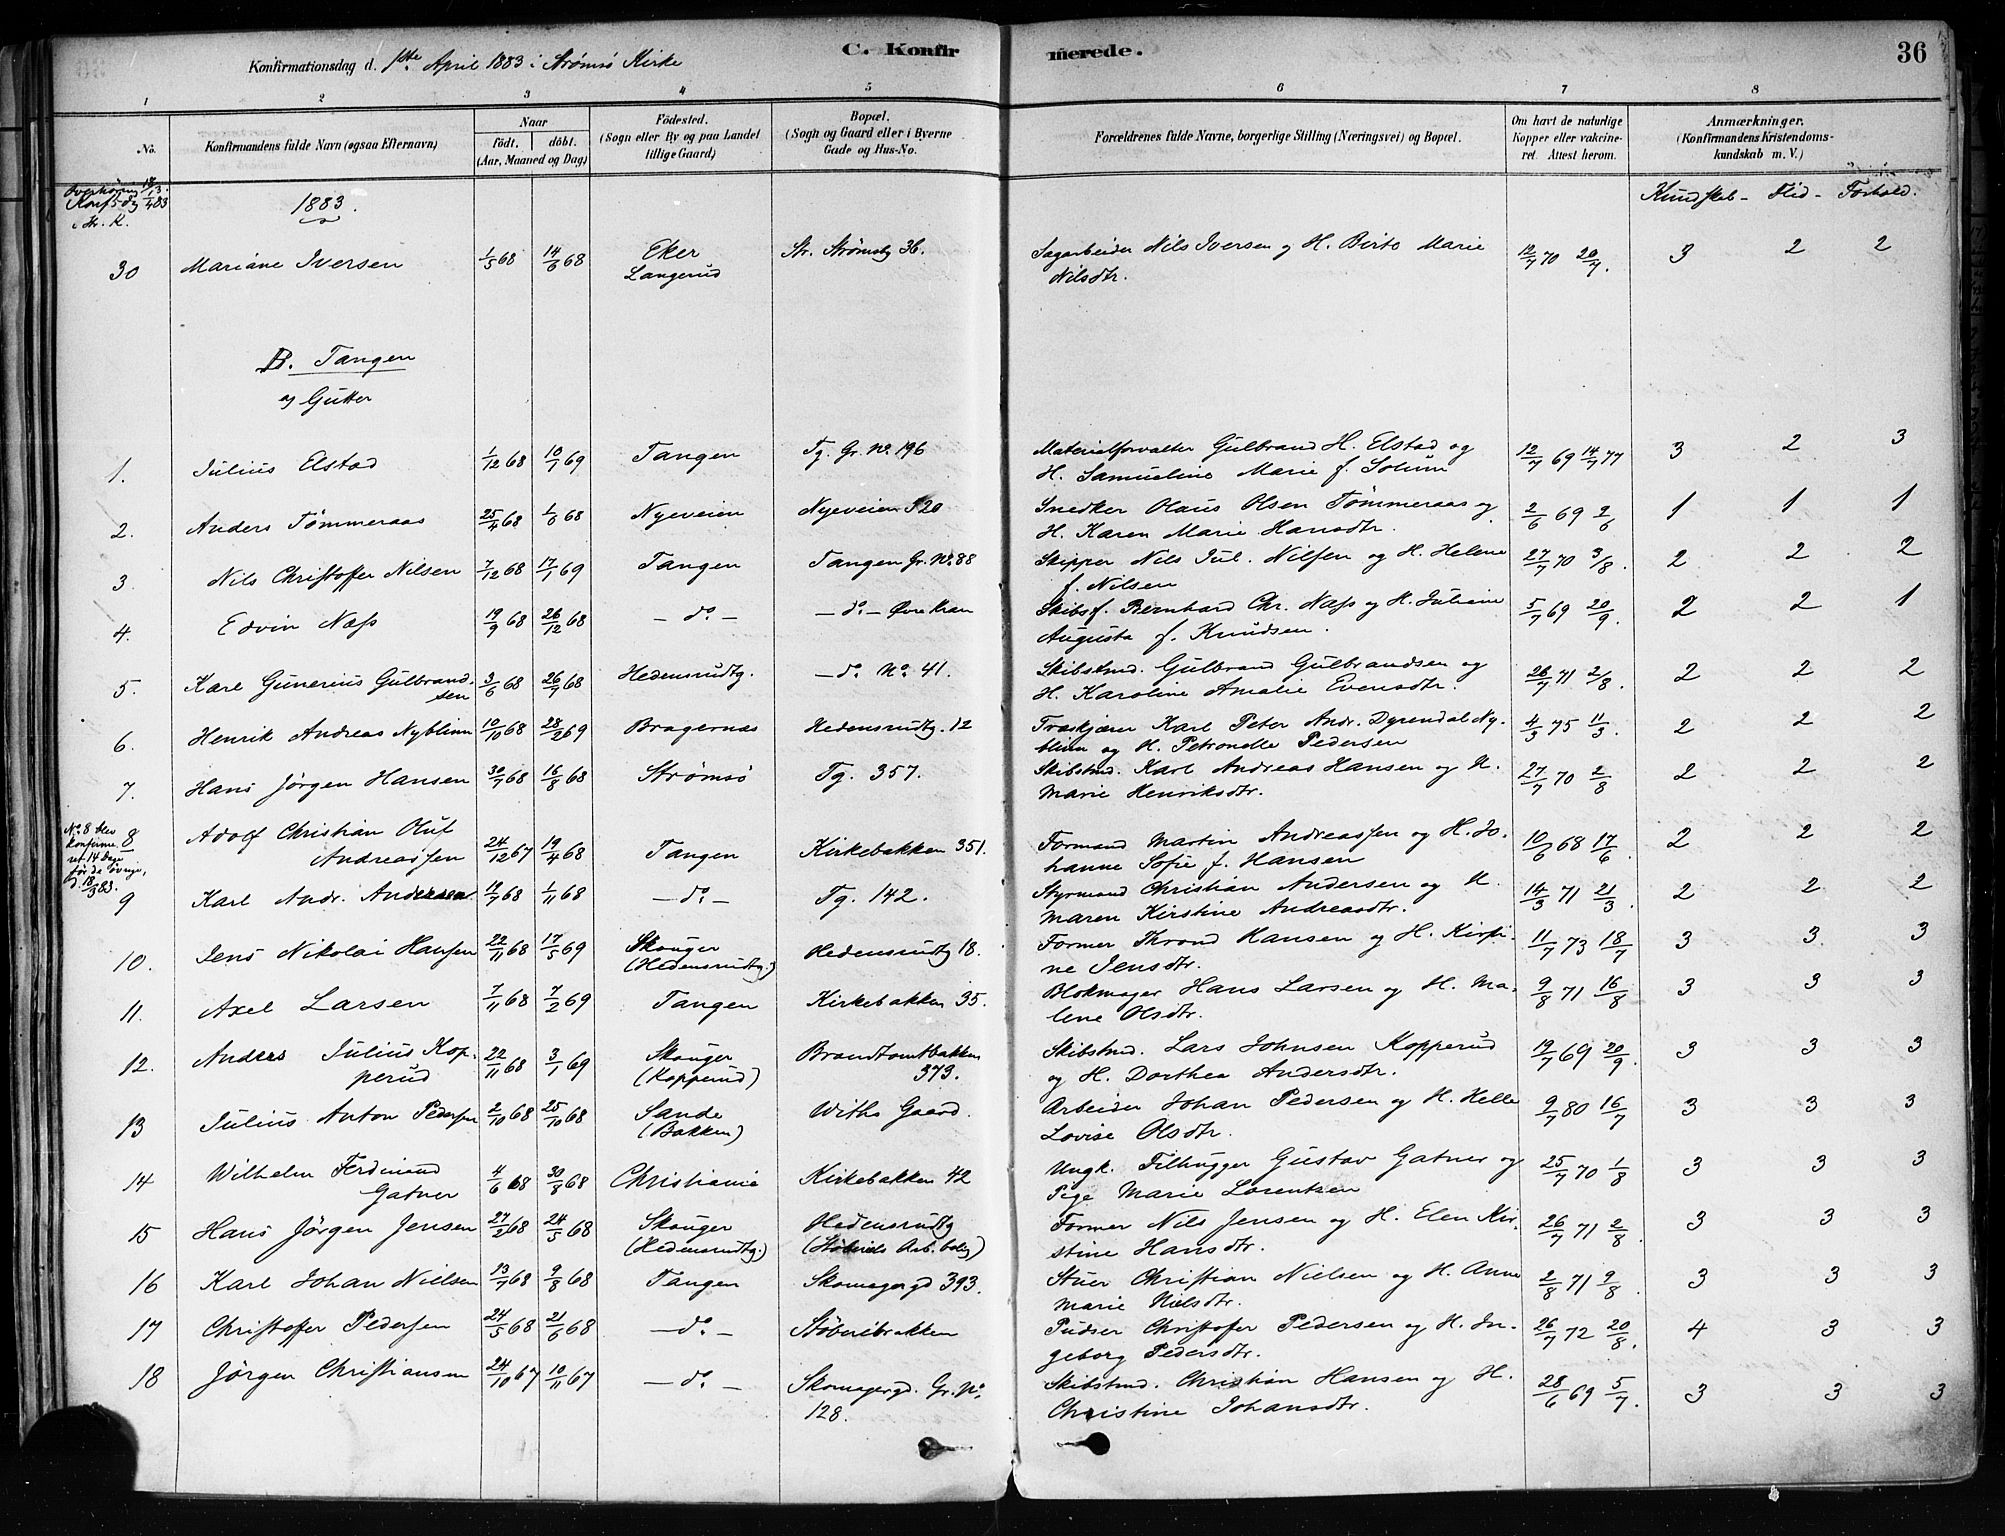 Konfirmationsdag d. 1ste April 1883 i Strømsø Kirke
C. Konfirmerede.
36
1 2 3 4 5 6 7 8
No.
Konfirmandens fulde Navn (ogsaa Efternavn)
Naar
födt. döbt.
(Aar, Maaned og Dag)
Födested.
(Sogn eller By og paa Landet
tillige Gaard)
Bopæl.
(Sogn og Gaard eller i Byerne
Gade og Hus-No.
Forældrenes fulde Navne, borgerlige Stilling (Næringsvei) og Bopæl.
Om havt de naturlige
Kopper eller vakcine-
ret. Attest herom.
Anmærkninger.
(Konfirmandens Kristendoms-
kundskab m. V.)
Overhøring 18/3.
Konf. dg 1/4 83
i Str. K.
1883.
Kundskab - Flid - Forhold.
30 Mariane Iversen 1/5 68 14/6 68 Eker Str. Strømsby 36. Sagarbeider Nils Iversen og H. Berte Marie 12/7 70 20/7. 3 2 2
Langerud Nilsdtr.
B. Tangen
a) Gutter
1. Julius Elstad 1/12 68 10/1 69 Tangen Tg. Gr. No. 196 Materialforvalter Gulbrand H. Elstad og 12/7 69 14/7 77 3 2 3
H. Samueline Marie f. Solum
2. Anders Tømmeraas 25/4 68 1/6 68 Nyeveien Nyeveien 520 Snedker Olaus Olsen Tømmeraas og 2/6 69 2/6 1 1 1
H. Karen Marie Hansdtr.
3 Nils Christoffer Nilsen 7/12 68 17/1 69 Tangen Tangen Gr. No. 88 Skipper Nils Jul. Nilsen og H. Helene 27/7 70 3/8. 2 2 2
f. Nilsen
4. Edvin Næss 19/9 68 26/12 68 - do. - - do. - Øvre Kran Skibsf. Bernhard Chr. Næss og H. Juliane 5/7 69 20/9. 2 2 1
Augusta f. Knudsen.
5. Karl Gunerius Gulbrand- 3/6 68 26/7 68 Hedensrudtg. - do. No. 41. Skibstmd. Gulbrand Gulbrandsen og 26/7 71 2/8. 2 2 2
sen H. Karoline Amalie Evensdtr.
6. Henrik Andreas Nyblinn 10/10 68 28/2 69 Bragernæs Hedensrudtg. 12 Træskjærer Karl Peter Andr. Dyrendal Ny- 4/3 75 11/3. 2 2 2
blinn og H. Petronelle Pedersen
7. Hans Jörgen Hansen 30/7 68 16/8 68 Strømsö Tg. 357. Skibstmd. Karl Andreas Hansen og H. 27/7 70 2/8 2 2 2
Marie Henriksdtr.
No. 8 blev
konfirme-
ret 14 Dage
før de øvrige,
d. 18/3 83.
8 Adolf Christian Oluf 24/12 67 19/4 68 Tangen Kirkebakken 351. Formand Martin Andreassen og H. Jo- 10/6 68 17/6. 2 2 2
Andreassen hanne Sofie f. Hansen
9 Karl Andr. Andersen 19/7 68 1/11 68 - do. - Tg. 142. Styrmand Christian Andersen og H. 14/3 71 21/3. 2 2 2
Maren Kirstine Andreasdtr.
10. Jens Nikolai Hansen 22/11 68 17/5 69 Skouger Hedensrudtg 18. Former Thrond Hansen og H. Kirsti- 11/7 73 18/7 3 3. 3
(Hedensrudtg.) ne Jensdtr.
11. Axel Larsen 7/11 68 7/2 69 Tangen Kirkebakken 35. Blokmager Hans Larsen og H. Ma- 9/8 71 16/8 3 3 3
lene Olsdtr.
12. Anders Julius Kop- 22/11 68 3/1 69 Skouger Brandtomtbakken Skibstmd. Lars Johnsen Kopperud 19/7 69 20/9. 3 3 3
perud (Kopperud) 373. og H. Dorthea Andersdtr.
13 Julius Anton Pedersen 2/10 68 25/10 68 Sande Withs Gaard. Arbeider Johan Pedersen og H. Helle 9/7 80 16/7 3 3 3
(Bakken) Lovise Olsdtr.
14 Wilhelm Ferdinand 4/6 68 30/8 68 Christiania Kirkebakken 42 Ungk. Filhugger Gustav Gatner og 25/7 70 1/8 3 3 3
Gatner Pige Marie Lorentzen
15 Hans Jörgen Jensen 27/2 68 24/5 68 Skouger Hedensrudtg Former Nils Jensen og H. Elen Kir- 26/7 71 2/8. 3 3 3
(Hedensrudtg.) (Støberiets Arb. bolig) stine Hansdtr.
16 Karl Johan Nielsen 13/7 68 9/8 68 Tangen Skomagergd 393. Stuer Christian Nielsen og H. Anne 2/8 71 9/8. 3 3 3
Marie Nielsdtr.
17 Christoffer Pedersen 24/5 68 21/6 68 - do. - Støberibakken Pudser Christofer Pedersen og H. In- 26/7 72 20/8. 4 3 3
geborg Pedersdtr.
18 Jörgen Christiansen 24/10 67 10/11 67 - do. - Skomagergd. Gr. No. Skibstmd. Christian Hansen og H. 28/6 69 5/7. 3 3 3
128. Christine Johansdtr.